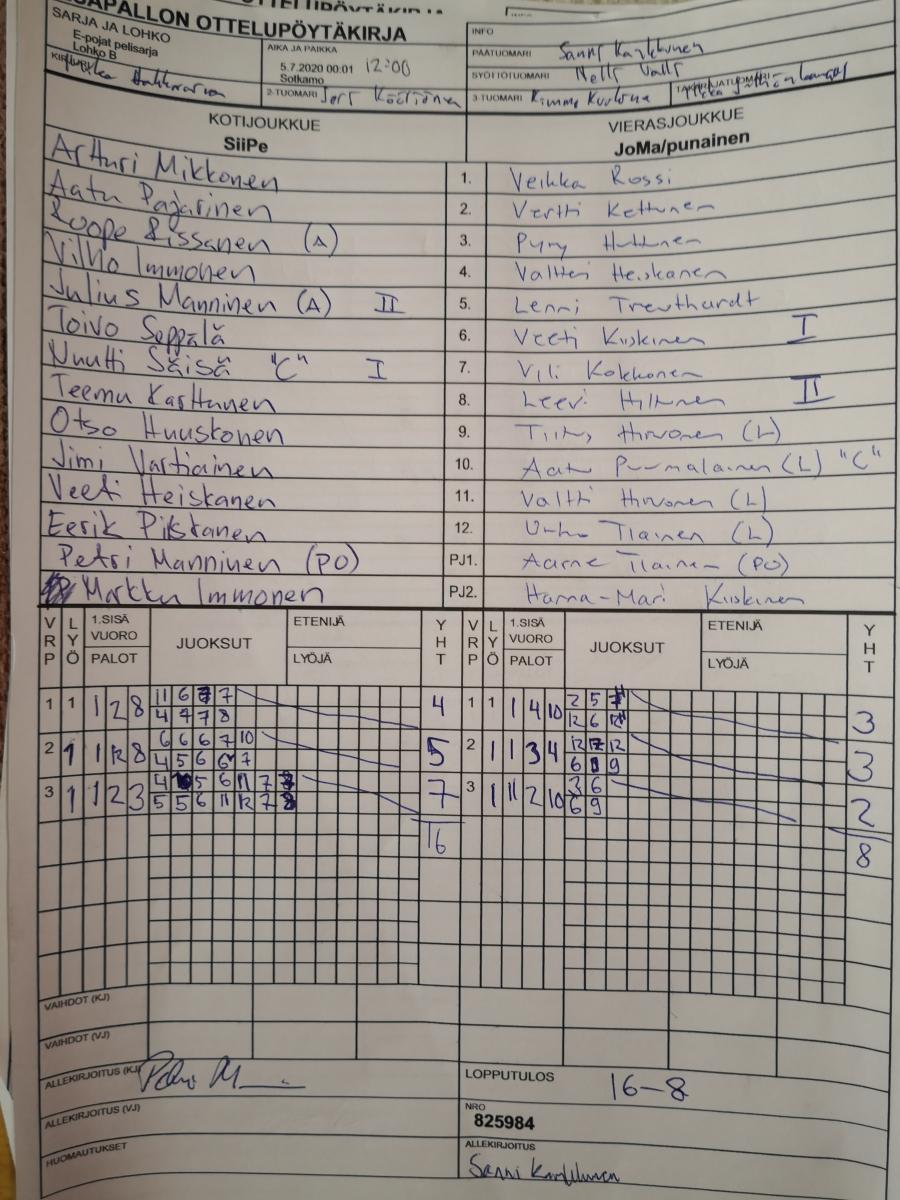 PESÄPALLON OTTELUPÖYTÄKIRJA
SARJA JA LOHKO
E-pojat pelisarja
Lohko B
KIRJURI
AIKA JA PAIKKA
5.7.2020 00:01 12:00
Sotkamo
2-TUOMARI
INFO
PÄÄTUOMARI Sanni Karhunen
SYÖTTÖTUOMARI
3-TUOMARI Kimmo
TAKARAJATUOMARI
KOTIJOUKKUE
SiiPe
VIERASJOUKKUE
JoMa/punainen
Artturi Mikkonen 1. Veikka Rossi
Aatu Pajarinen 2. Vertti Kettunen
Roope Rissanen (A) 3. Pyry Huttunen
Vilho Immonen 4. Valtteri Heiskanen
Julius Manninen (A) II 5. Lenni Treuthardt
Toivo Seppälä 6. Veeti Kiiskinen I
Nuutti Säisä "C" I 7. Vili Kokkonen
Teemu Karttunen 8. Leevi Hiltunen II
Otso Huuskonen 9. Hirvonen (L)
Jimi Vartiainen 10. Aatu Puumalainen (L) "C"
Veeti Heiskanen 11. Valtti Hirvonen (L)
Eerik Piiskanen 12. Urho Tiainen (L)
Petri Manninen (PO) PJ1. Aarne Tiainen (PO)
Markku Immonen PJ2. Hanna-Mari Kiiskinen
VRP LYÖ 1.SISÄ VUORO PALOT JUOKSUT ETENIJÄ LYÖJÄ YHT VRP LYÖ 1.SISÄ VUORO PALOT JUOKSUT ETENIJÄ LYÖJÄ YHT
1 1 1 2 8 11 6 7 7 4 1 1 1 4 10 2 5 3
4 7 7 8 12 6
2 1 1 12 8 6 6 6 7 10 5 2 1 1 3 4 12 12 3
4 5 6 6 7 6 9
3 1 1 2 3 4 5 6 11 7 7 3 1 11 2 10 3 6 2
5 5 6 11 12 7 8 6 9
16 8
VAIHDOT (KJ)
VAIHDOT (VJ)
ALLEKIRJOITUS (KJ)
ALLEKIRJOITUS (VJ)
HUOMAUTUKSET
LOPPUTULOS 16-8
NRO
825984
ALLEKIRJOITUS
Sanni Karhunen